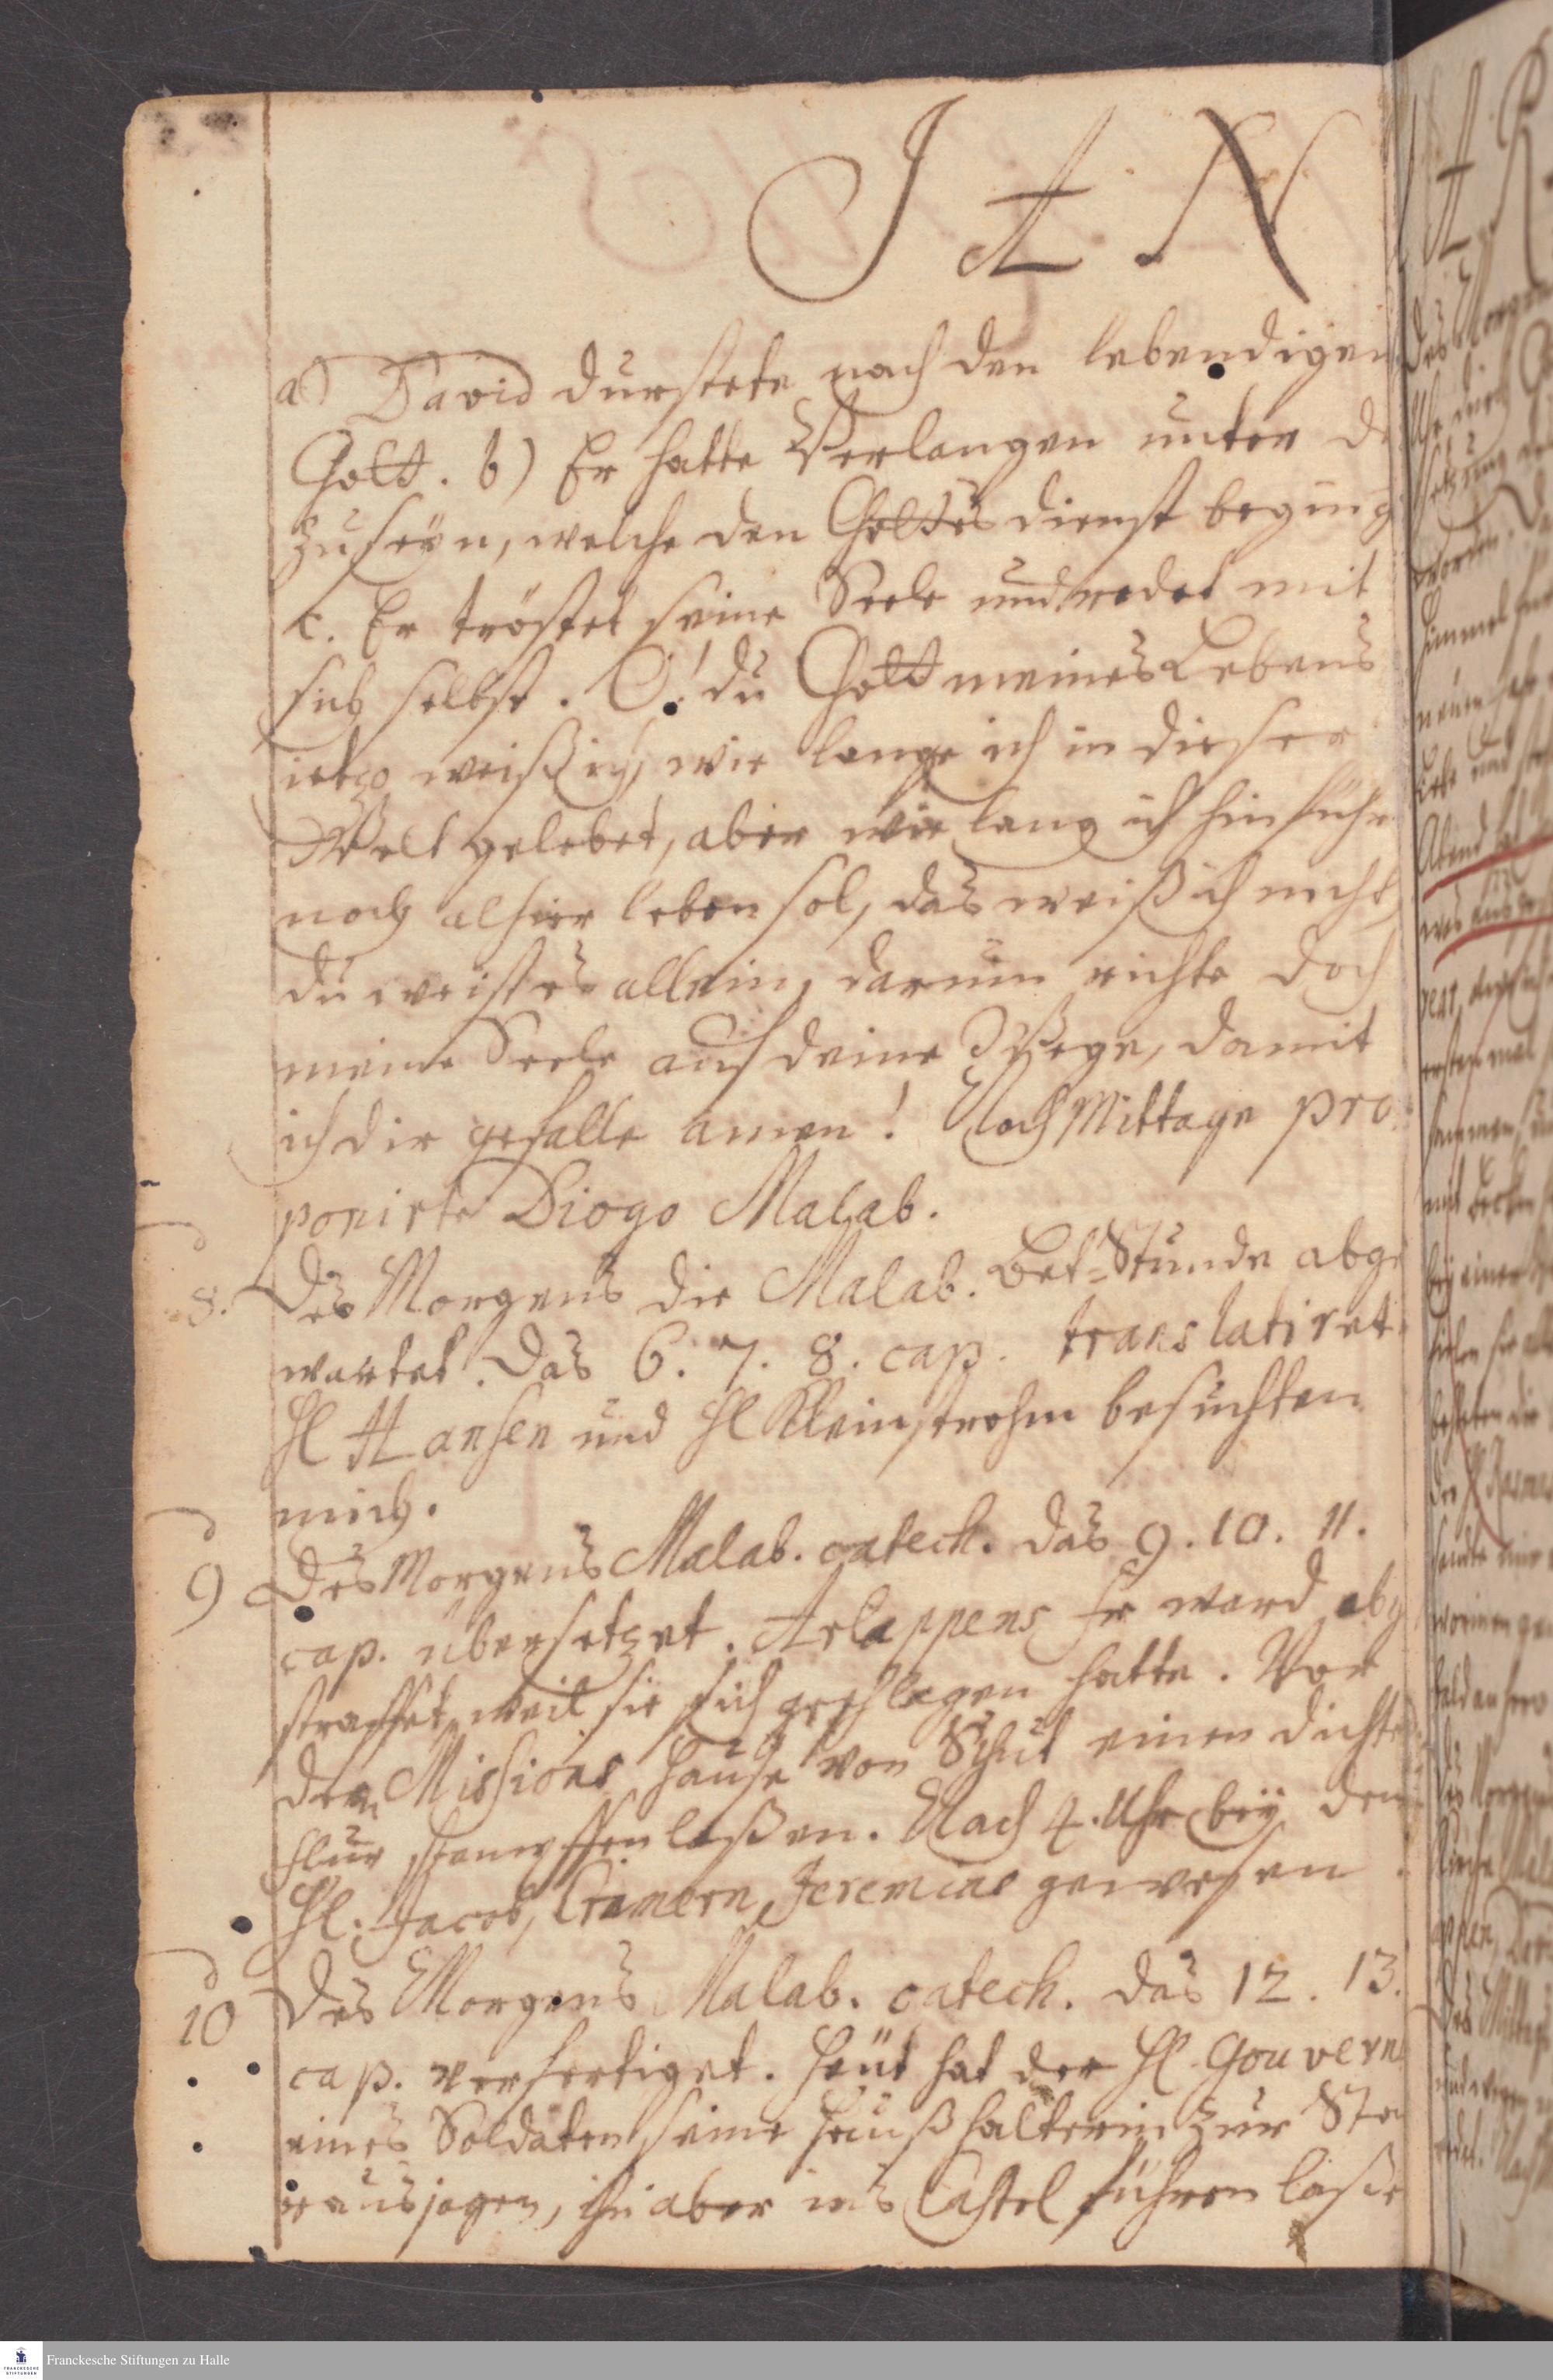 J A N
a) David durstete nach den lebendigen
Gott. b) Er hatte Verlangen unter de
zu seyn, welche den Gottes dienst beging
c. Er tröstet seine Seele und redet mit
sich selbst. O! du Gott meines Lebens
ietzo weiß ich, wie lange ich in dieser
Welt gelebet, aber wie lang ich hinführ
noch alhier leben sol, das weiß ich nicht,
du weist es allein, darum richte doch
meine Seele auf deine Wege, damit
ich dir gefalle amen! Nach Mittage pro
ponirte Diogo Malab.
8. Des Morgens die Malab. Bet-Stunde abge
wartet. Das 6. 7. 8. cap. translatiret.
Hl Hansen und Hl Kleinstrohm besuchten
mich.
9 Des Morgens Malab. catech. das 9. 10. 11.
cap. übersetzet. Arlappens Fr ward abg
straffet, weil sie sich geschlagen hatte. Vor
dem Missions Hause von Schut einen dichte
flur stampffen laßen. Nach 4. Uhr bey den
Hl. Jacob, Cramern, Jeremias gewesen.
10 Des Morgens Malab. catech. das 12. 13.
cap. verfertiget. Heut hat der Hl. Gouvern
eines Soldaten seine Haußhalterin zur Sta
rausjagen, ihn aber ins Castel führen laße
Franckesche Stiftungen zu Halle